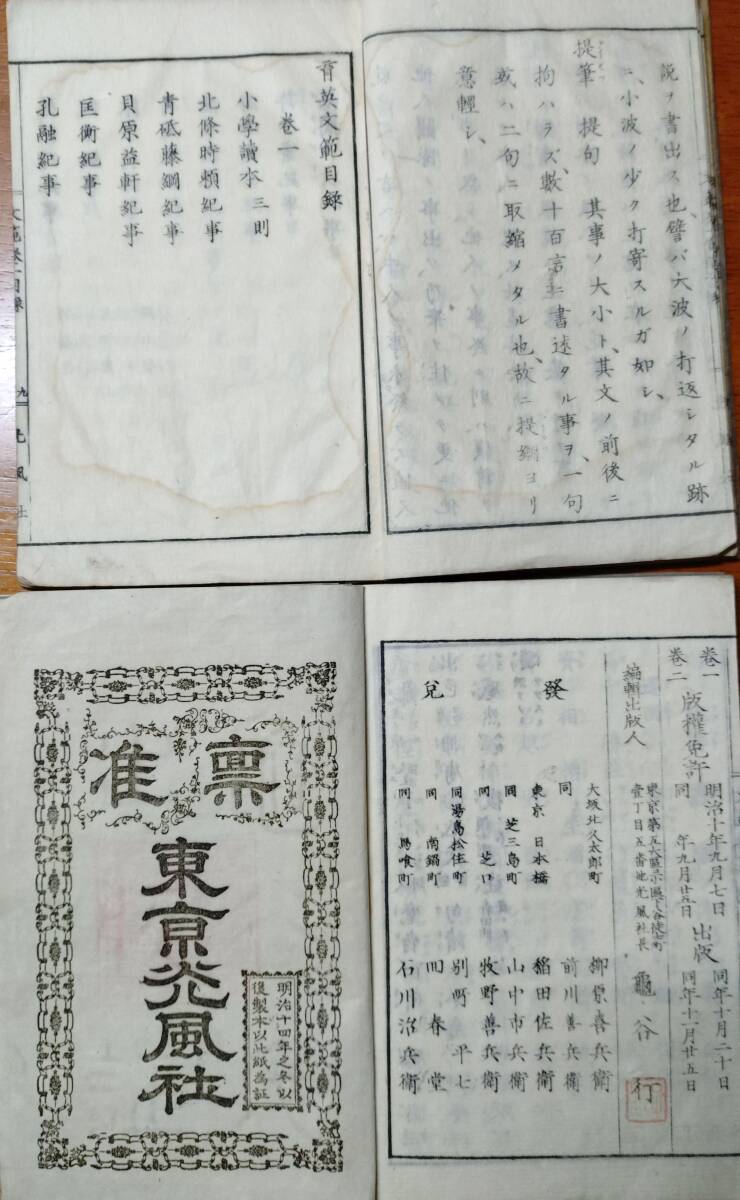 説ヲ書出ス也、譬バ大波ノ打返シタル跡
ニ、小波ノ少ク打寄スルガ如シ、
提筆 提句 其事ノ大小ト、其文ノ前後ニ
拘ハラズ、數十百言ニ書速タル事ヲ、一句
或ハ二句ニ取縮メタル也、故ニ提綱ヨリ
意輕シ、
育英文範目録
卷一
小學讀本三則
北條時頼紀事
青砥藤綱紀事
貝原益軒紀事
匡衡紀事
孔融紀事
九
光風社
卷一
卷二
版權免許
明治十年九月七日
同 年九月廿五日
出版
同年十月二十日
同年十一月廿五日
編輯出版人
壹丁目五番地光風社長
龜谷行
發兌
大坂北久太郎町 柳原喜兵衛
同 前川善兵衛
東京 日本橋 稲田佐兵衛
同 芝三島町 山中市兵衛
同 芝口 牧野善兵衛
同湯島松住町 別所平七
同 南鍋町 回春堂
同 馬喰町 石川治兵衛
稟准
東京光風社
明治十四年之冬以
後製本以此紙為証